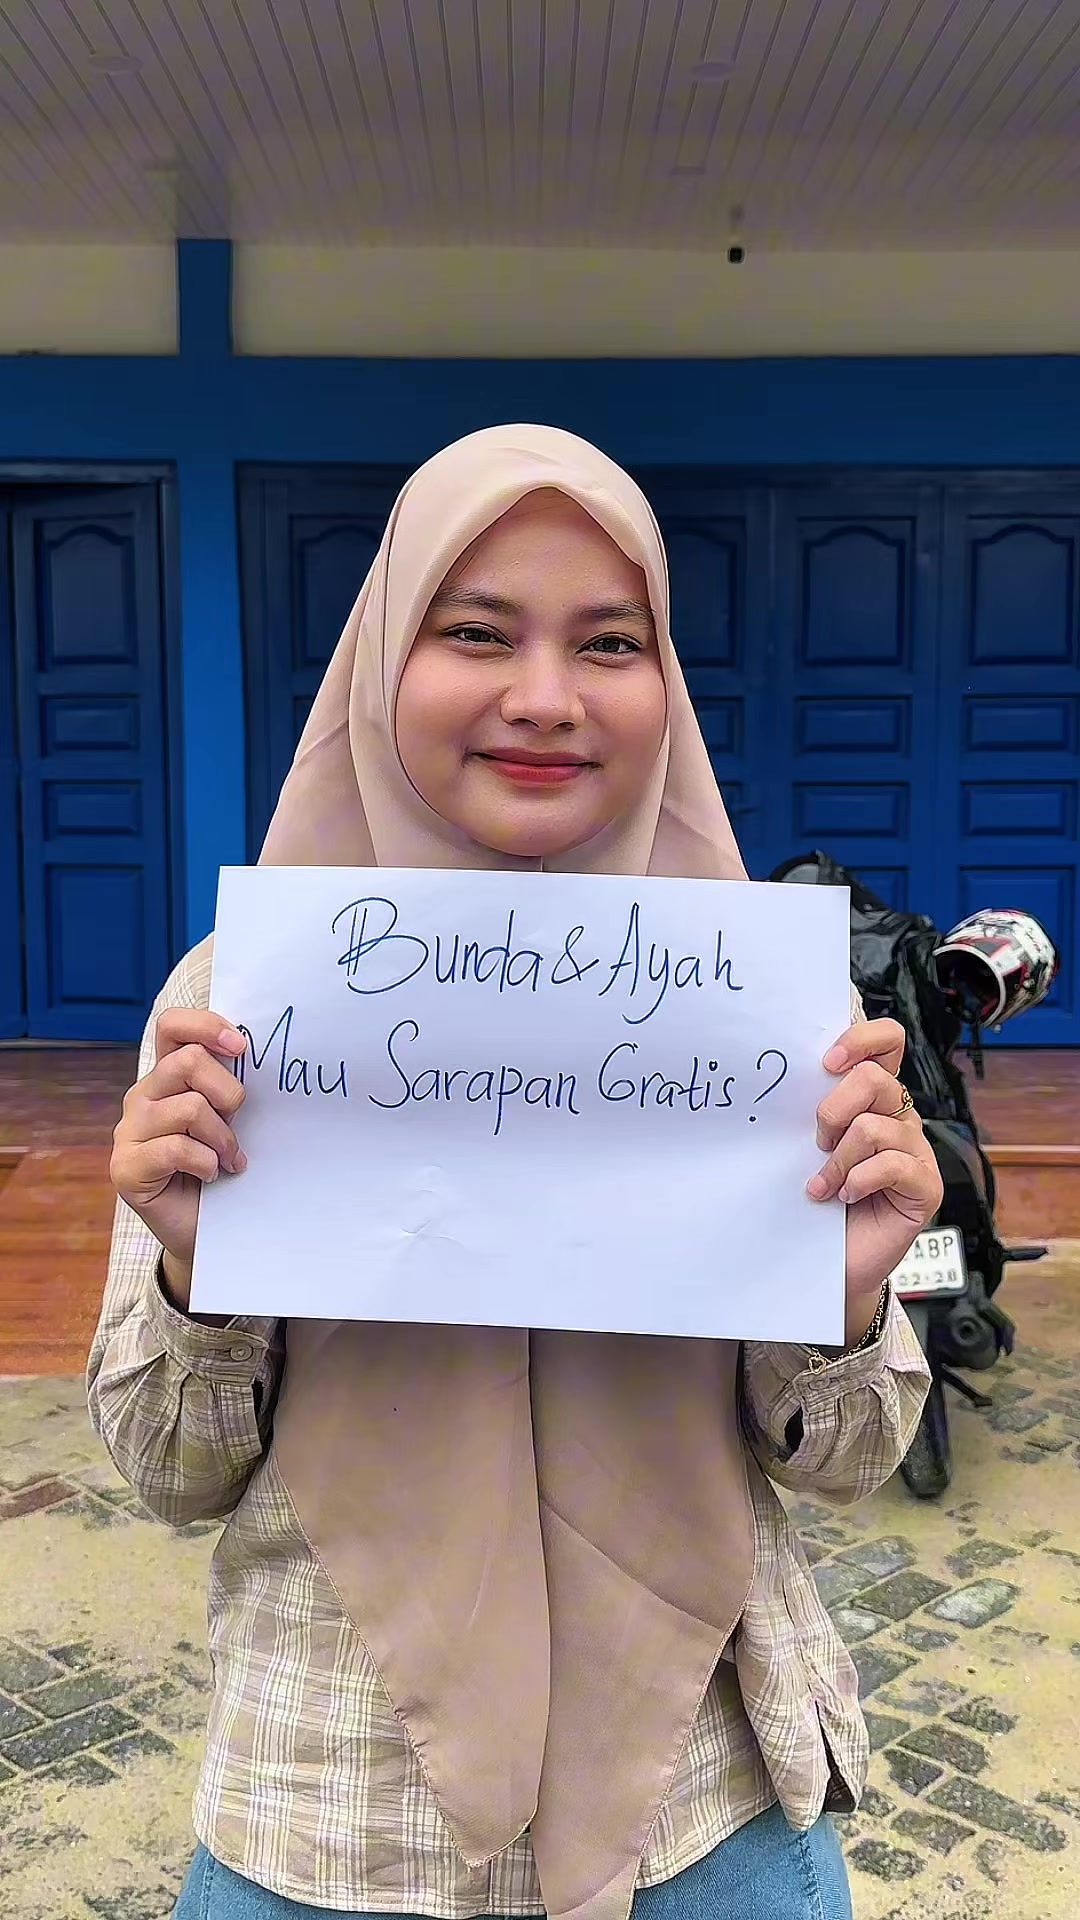 Bunda & Ayah
Mau Sarapan Gratis?
ABP
02·28